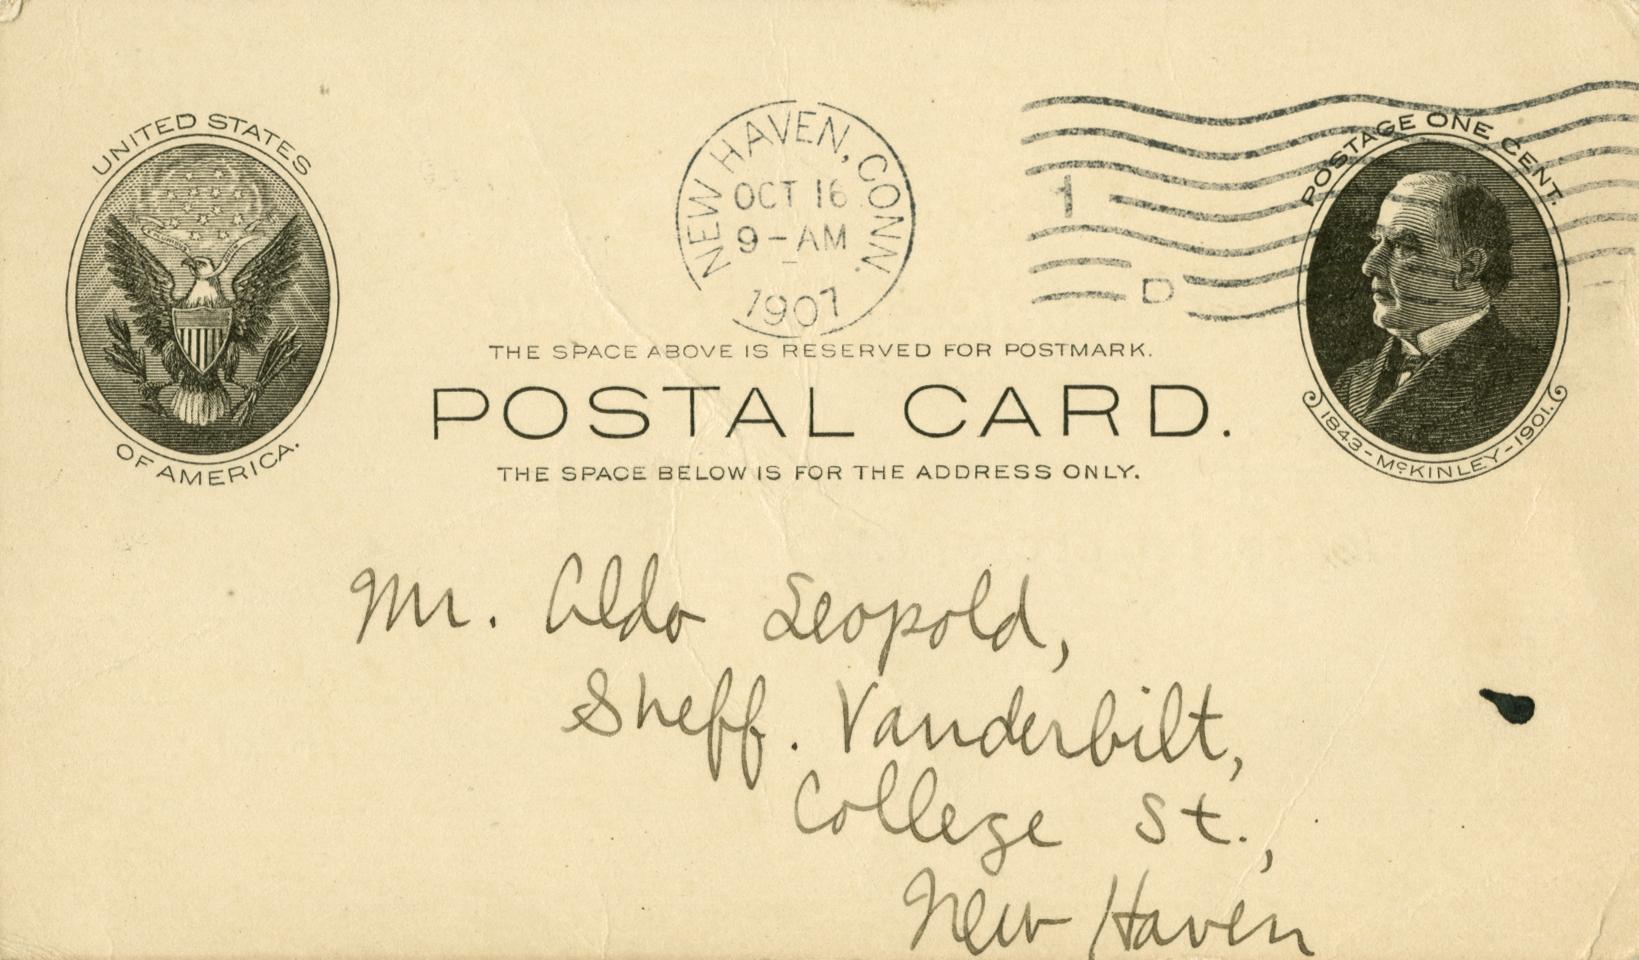 UNITED STATES
OF AMERICA.
NEW HAVEN, CONN.
OCT 16
9-AM
1907
1
D
POSTAGE ONE CENT.
1843-McKINLEY-1901.
THE SPACE ABOVE IS RESERVED FOR POSTMARK.
POSTAL CARD.
THE SPACE BELOW IS FOR THE ADDRESS ONLY.
Mr. Aldo Leopold,
Sheff. Vanderbilt,
College St.,
New Haven